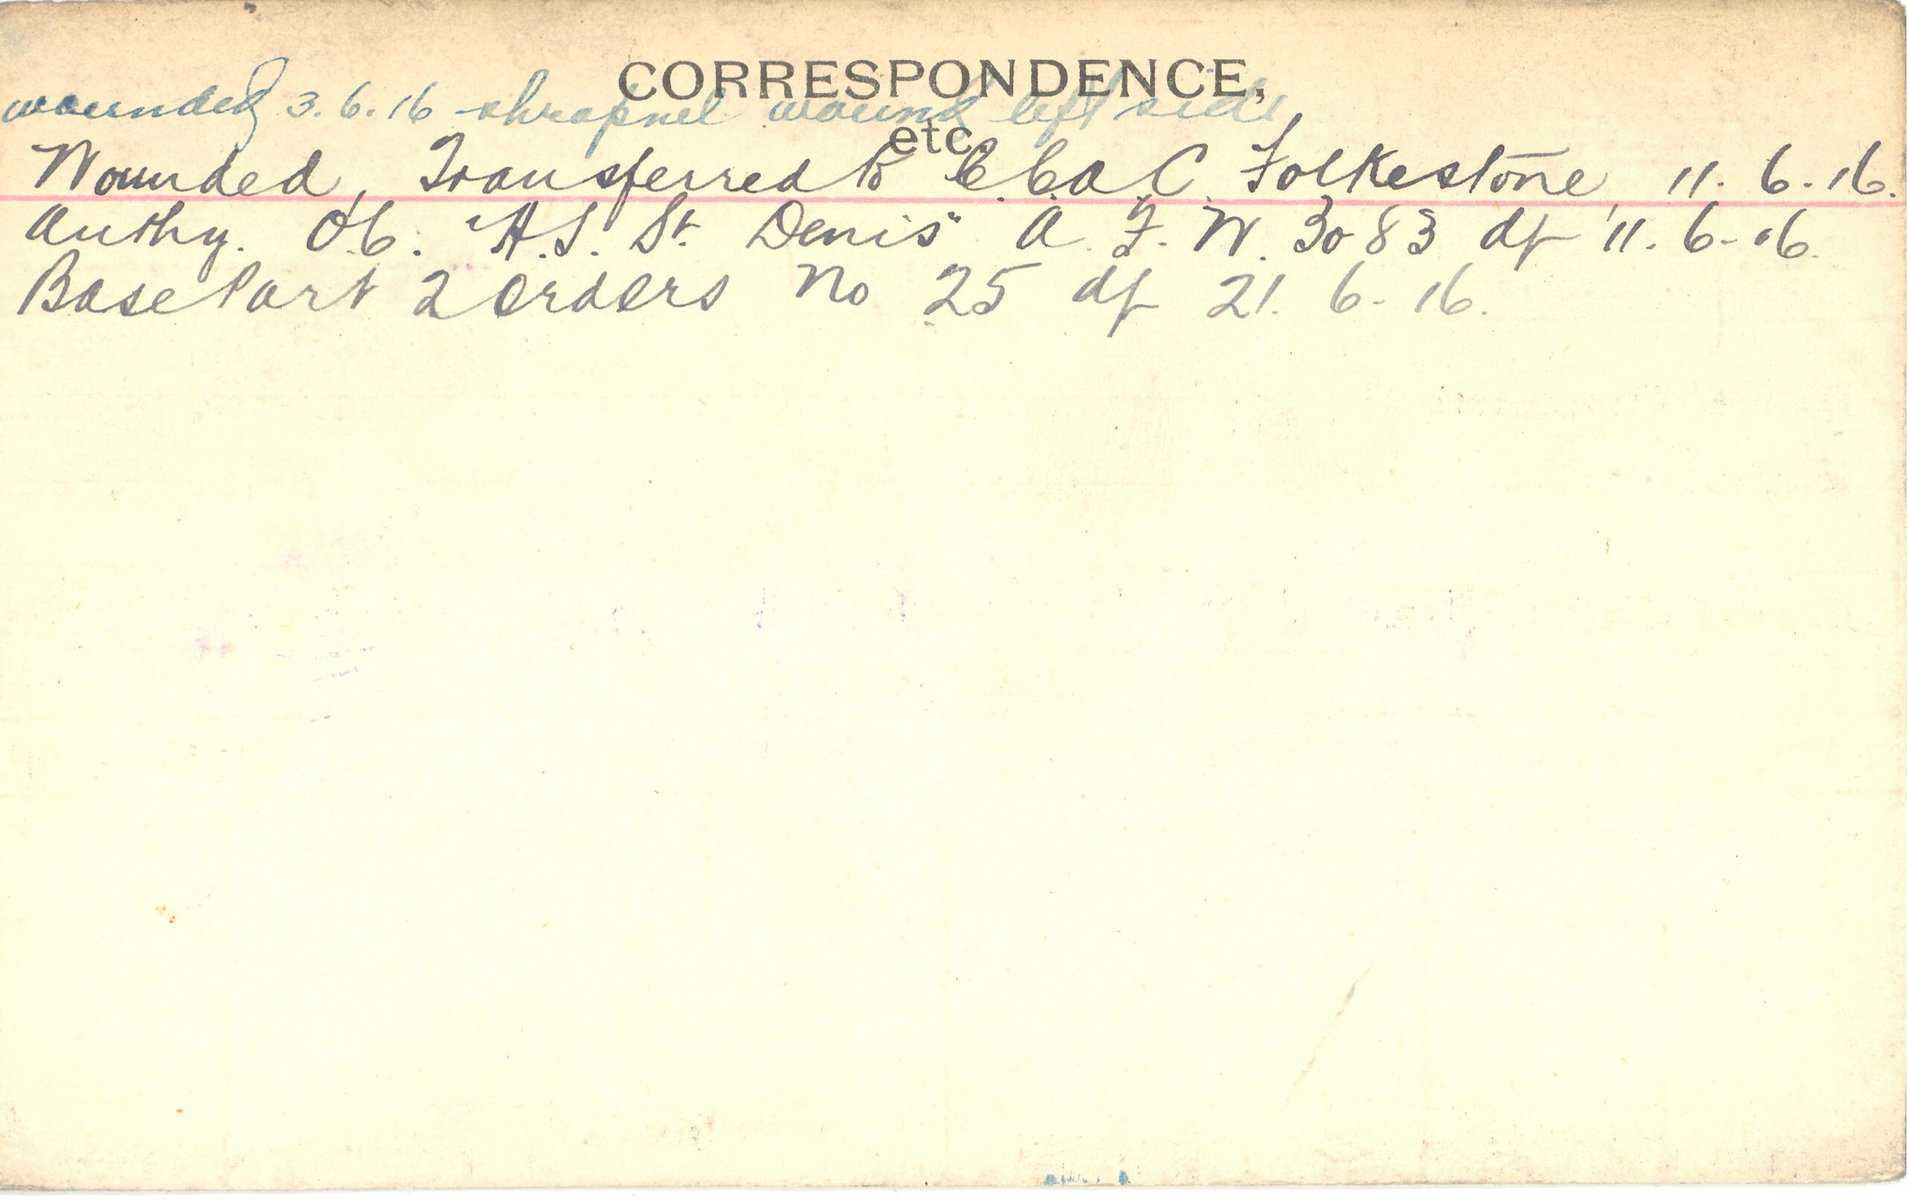 CORRESPONDENCE,
wounded 3.6.16 shrapnel wound left side
etc
Wounded, Transferred to C.C.A.C. Folkestone, 11.6.16.
Authy. O.C. "H.S. St. Denis" A.F.W. 3083 df 11.6-16.
Base Part 2 Orders No 25 df 21.6-16.